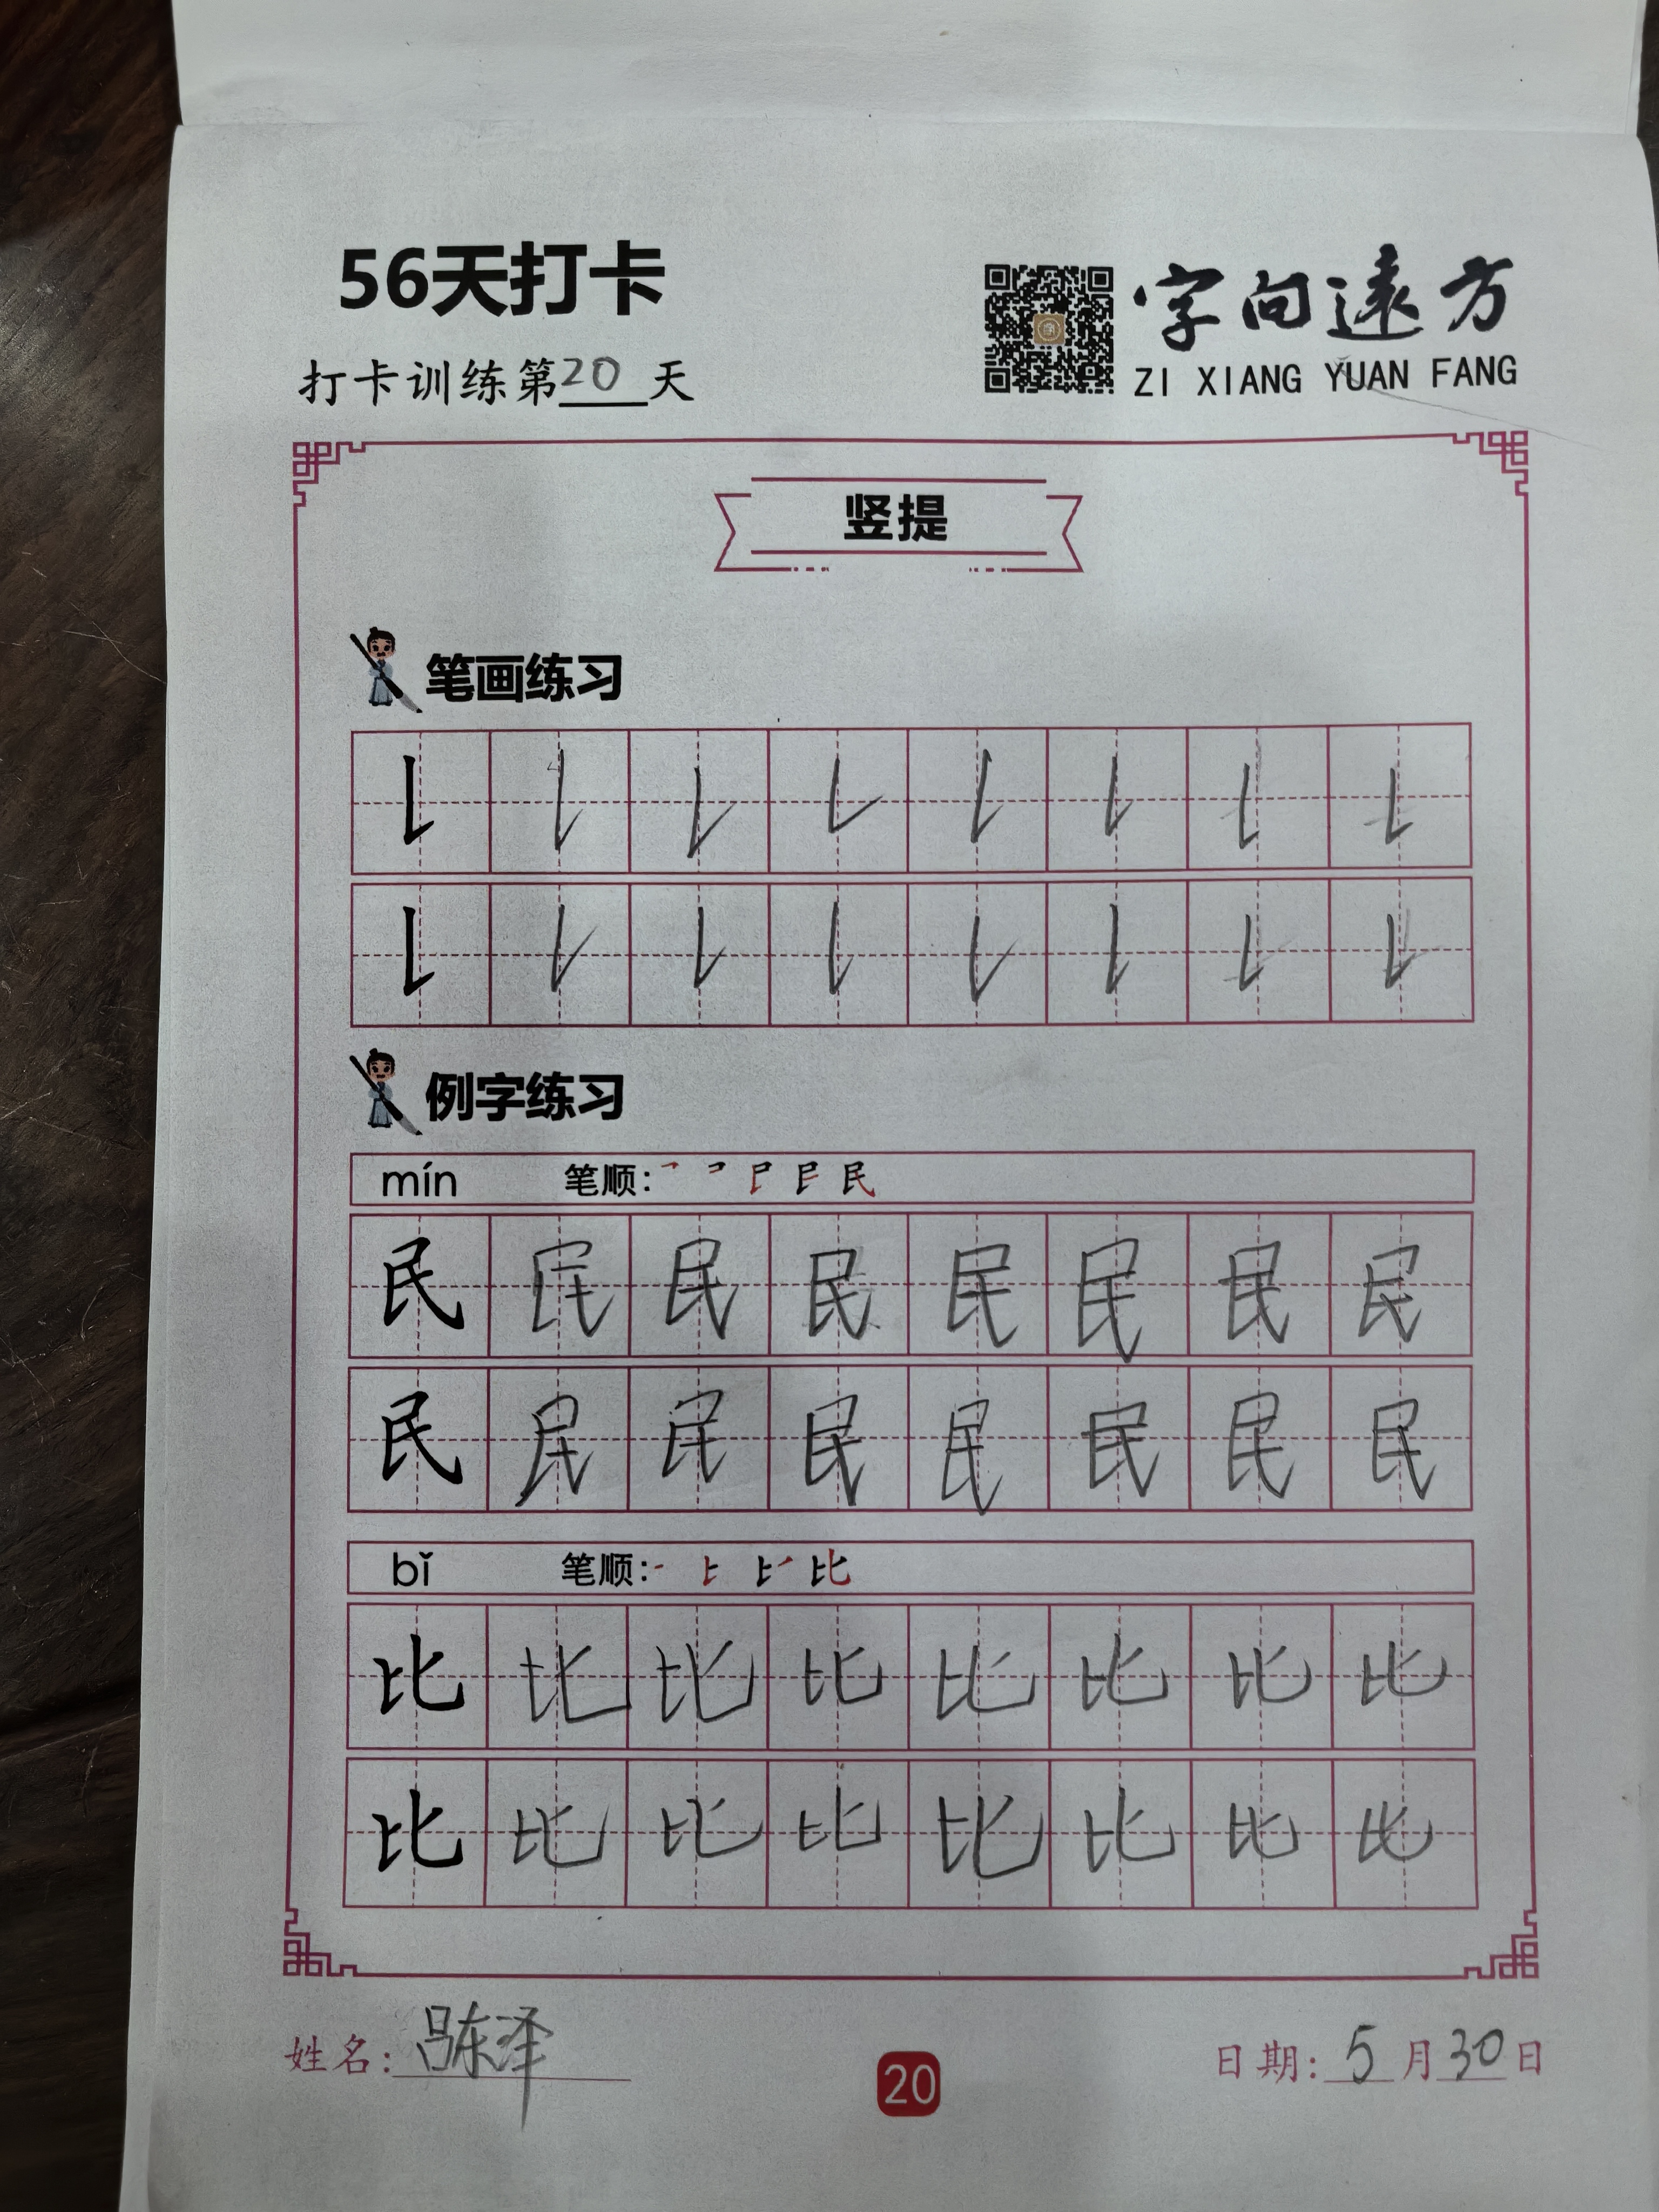 56天打卡
字向遠方
打卡训练第20天
ZI XIANG YUAN FANG
竖提
笔画练习
例字练习
mín 笔顺:
民 民 民 民 民 民 民 民
民 民 民 民 民 民 民 民
bǐ 笔顺:
比 比 比 比 比 比 比 比
比 比 比 比 比 比 比 比
姓名: 吕东泽
20
日期: 5月30日